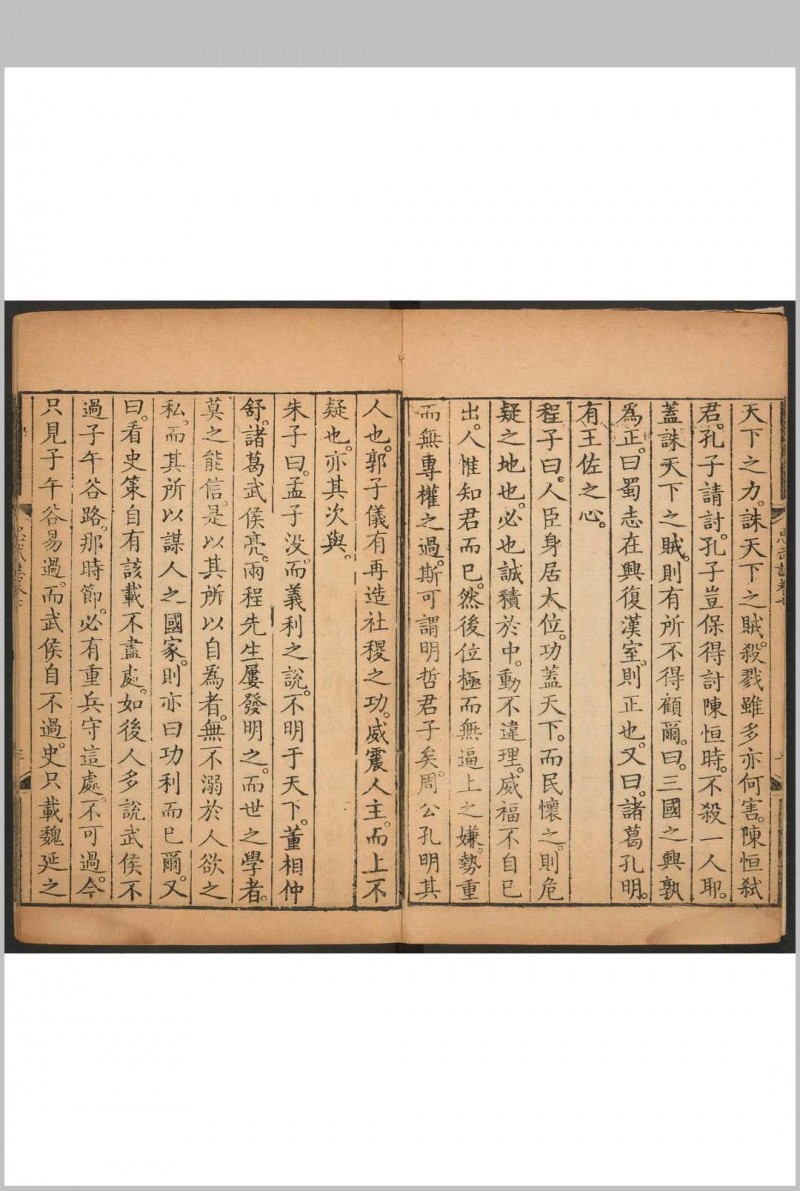 天下之力。誅天下之賊。殺戮雖多亦何害。陳恒弒
君。孔子請討。孔子豈保得討陳恒時。不殺一人耶。
蓋誅天下之賊。則有所不得顧爾。曰。三國之興孰
爲正。曰蜀志在興復漢室。則正也。又曰。諸葛孔明。
有王佐之心。
程子曰。人臣身居大位。功蓋天下。而民懷之。則危
疑之地也。必也誠積於中。動不違理。威福不自己
出。人惟知君而已。然後位極而無逼上之嫌。勢重
而無專權之過。斯可謂明哲君子矣。周公孔明其
人也。郭子儀有再造社稷之功。威震人主。而上不
疑也。亦其次與。
朱子曰。孟子没。而義利之說。不明于天下。董相仲
舒。諸葛武侯亮。兩程先生屢發明之。而世之學者。
莫之能信。是以其所以自爲者。無不溺於人欲之
私。而其所以謀人之國家。則亦曰功利而已爾。又
曰。看史策自有該載不盡處。如後人多說武侯不
過子午谷路。那時節。必有重兵守這處。不可過。今
只見子午谷易過。而武侯自不過。史只載魏延之